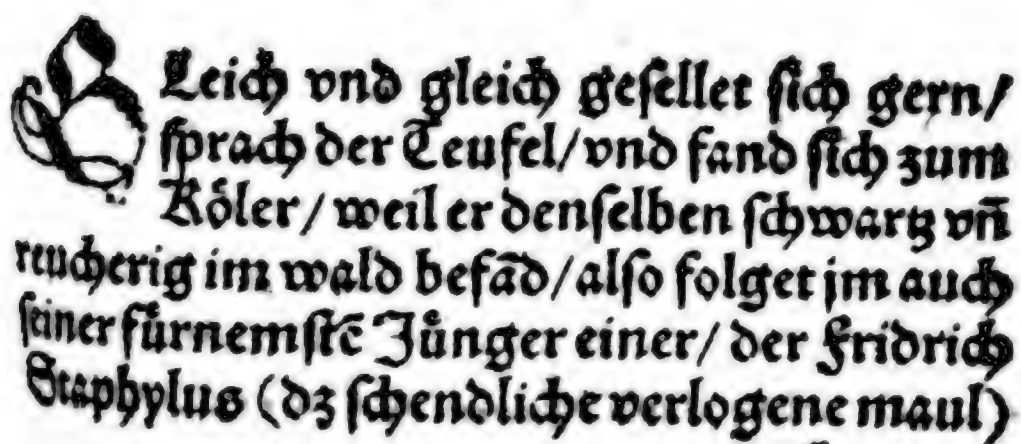 GLeich vnd gleich geſellet ſich gern/
ſprach der Teufel/vnd fand ſich zum
Koͤler/weil er denſelben ſchwartz vñ
reucherig im wald befād/alſo folget jm auch
ſeiner fuͤrnemſtē Juͤnger einer/ der Fridrich
Staphylus (dz ſchendliche verlogene maul)